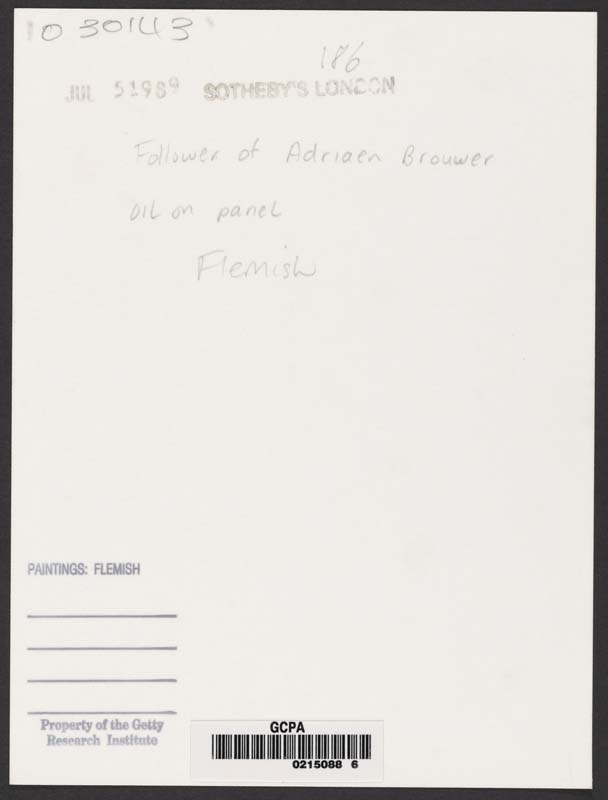 0 30143
186
JUL 5 1989 SOTHEBY'S LONDON
Follower of Adriaen Brouwer
oil on panel
Flemish
PAINTINGS: FLEMISH
Property of the Getty
Research Institute
GCPA
0215088 6